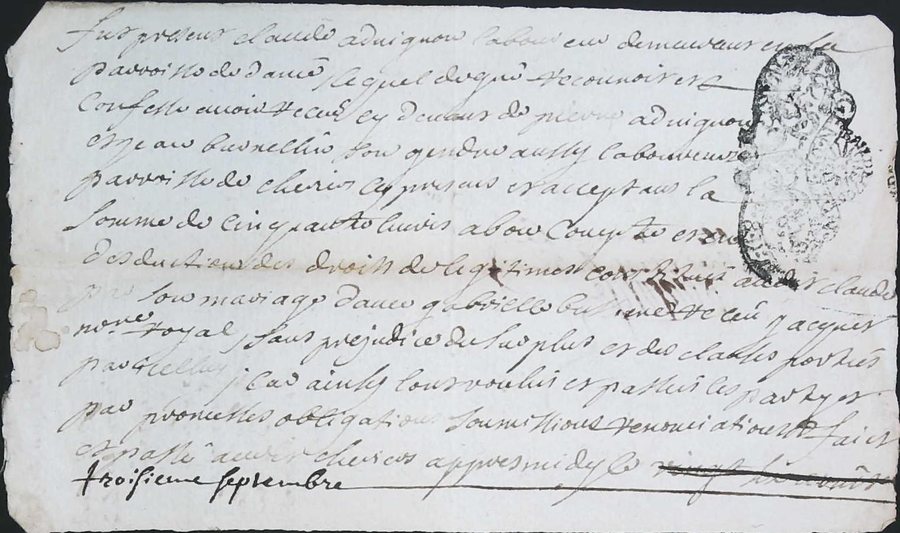 Fut present claude advignon laboureur demeurant en la
parroisse de davé lequel de gré reconnoit et
Confesse avoir receu cy devant de pierre advignon
et jean burnellin son gendre aussy laboureurs
parroisse de chericu cy presens et acceptans la
somme de cinquante livres a bon Compte et en
Desduction des droits de legitimes constitués audit claude
par son mariage d'avec gabrielle receu Jacques
nore royal sans prejudice du surplus et des clauses portées
par icelluy, Car ainsy l'ont voulus et passés les partyes
par promesses obligations soumissions renonciations et fait
et passé audit chericu appres midy le vingt
troisieme septembre